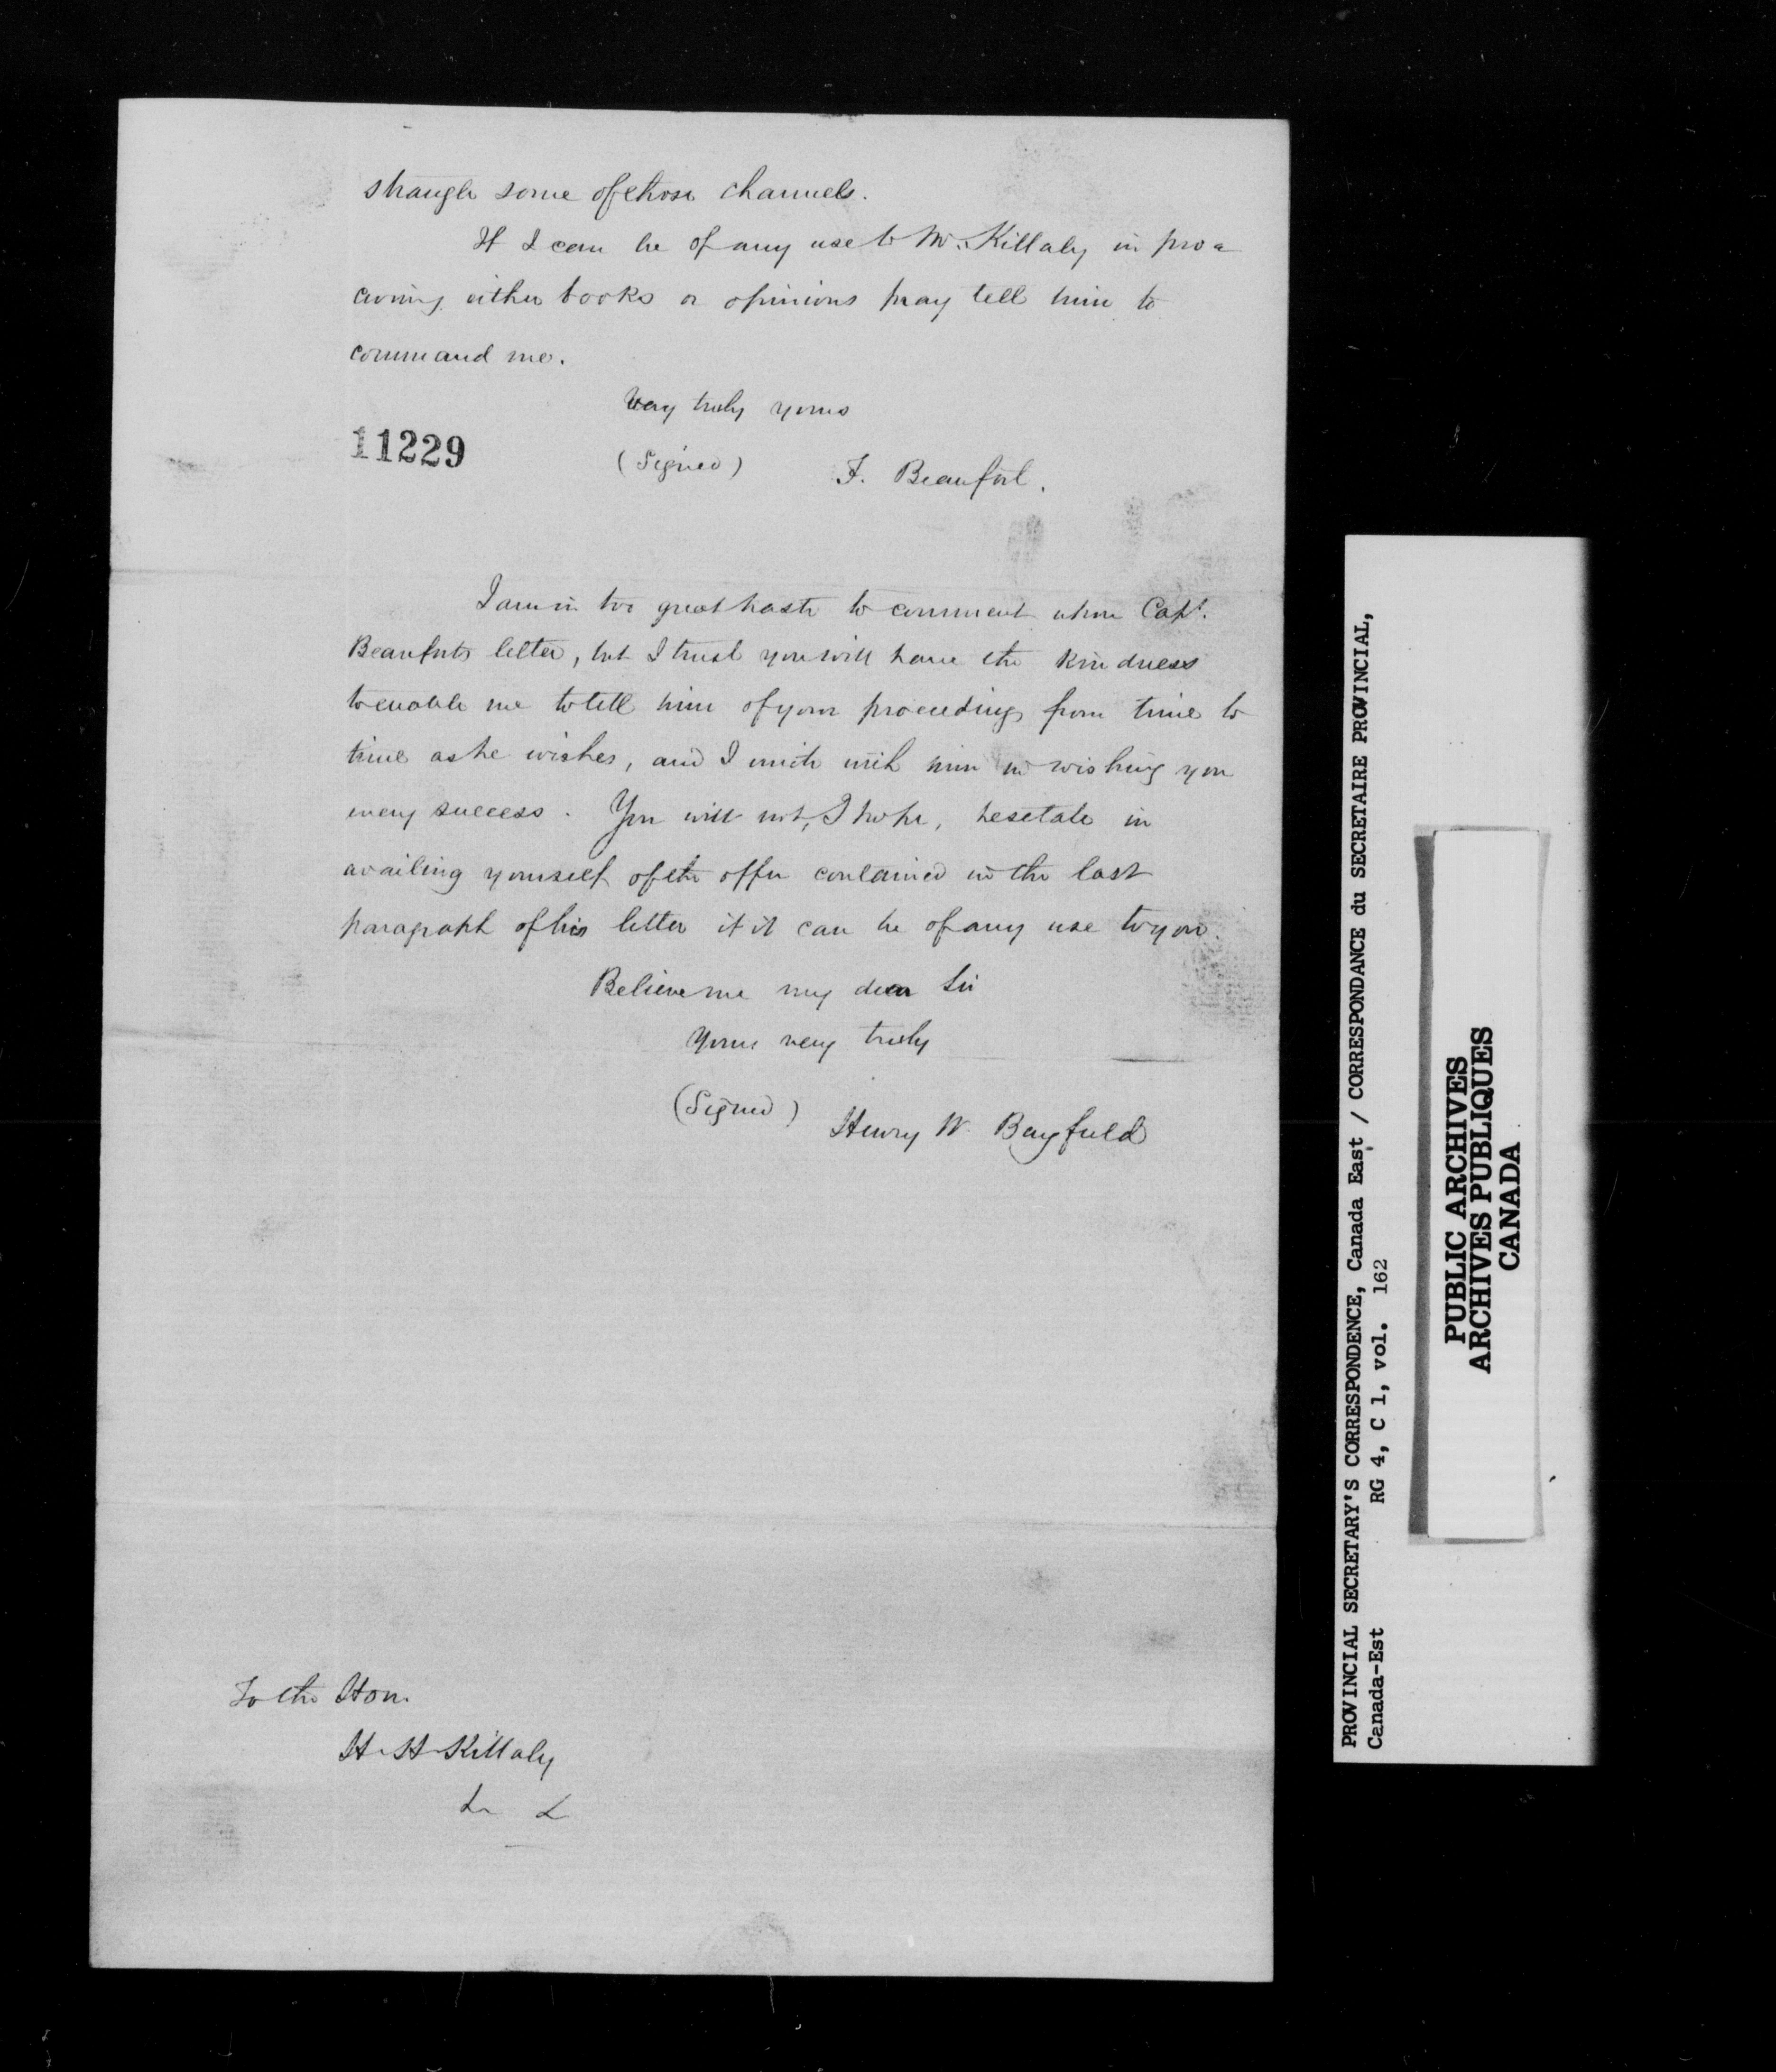 strangle some of those channels.
If I can be of any use to Mr. Killaly in pro=
curing either books or opinions pray tell him to
command me.
Very truly yours
11229
(Signed) F. Beaufort.
I am in too great haste to comment upon Capt.
Beauforts letter, but I trust you will have the kindness
to enable me to tell him of your proceedings from time to
time as he wishes, and I unite with him in wishing you
every success. You will not, I hope, hesetate in
availing yourself of the offer contained in the last
paragraph of his letter if it can be of any use to you.
Believe me my dear Sir
Yours very truly
(Signed) Henry W. Bayfield
To the Hon.
H. H. Killaly
PROVINCIAL SECRETARY'S CORRESPONDENCE, Canada East / CORRESPONDANCE du SECRETAIRE PROVINCIAL,
Canada-Est RG 4, C 1, vol. 162
PUBLIC ARCHIVES
ARCHIVES PUBLIQUES
CANADA